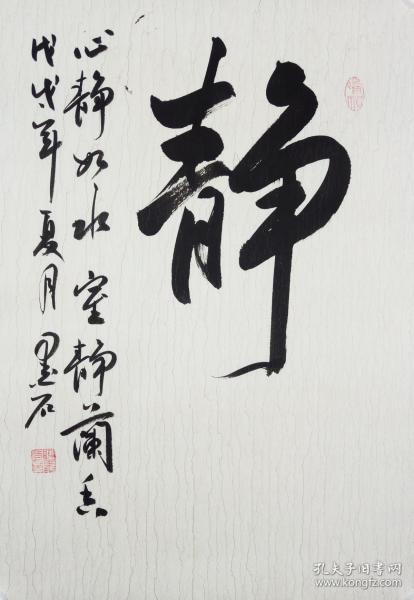 静
心静如水室静兰香
戊戌年夏月墨石
孔夫子旧书网
www.kongfz.com